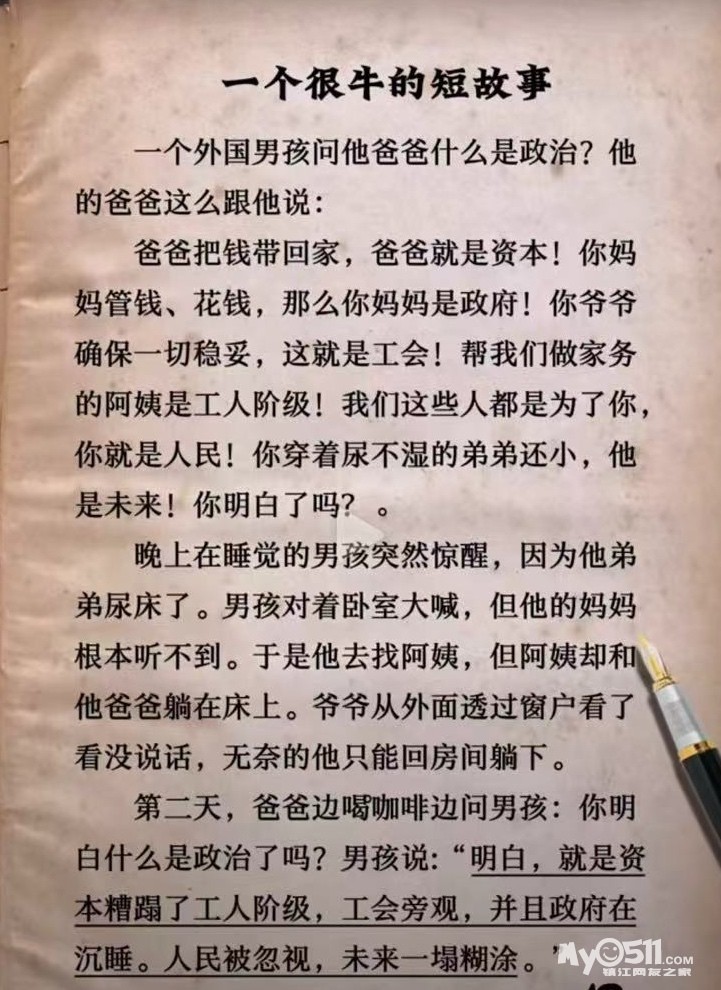 一个很牛的短故事
一个外国男孩问他爸爸什么是政治？他
的爸爸这么跟他说：
爸爸把钱带回家，爸爸就是资本！你妈
妈管钱、花钱，那么你妈妈是政府！你爷爷
确保一切稳妥，这就是工会！帮我们做家务
的阿姨是工人阶级！我们这些人都是为了你，
你就是人民！你穿着尿不湿的弟弟还小，他
是未来！你明白了吗？ 。
晚上在睡觉的男孩突然惊醒，因为他弟
弟尿床了。男孩对着卧室大喊，但他的妈妈
根本听不到。于是他去找阿姨，但阿姨却和
他爸爸躺在床上。爷爷从外面透过窗户看了
看没说话，无奈的他只能回房间躺下。
第二天，爸爸边喝咖啡边问男孩：你明
白什么是政治了吗？男孩说：“明白，就是资
本糟蹋了工人阶级，工会旁观，并且政府在
沉睡。人民被忽视，未来一塌糊涂。”
My0511.com
镇江网友之家